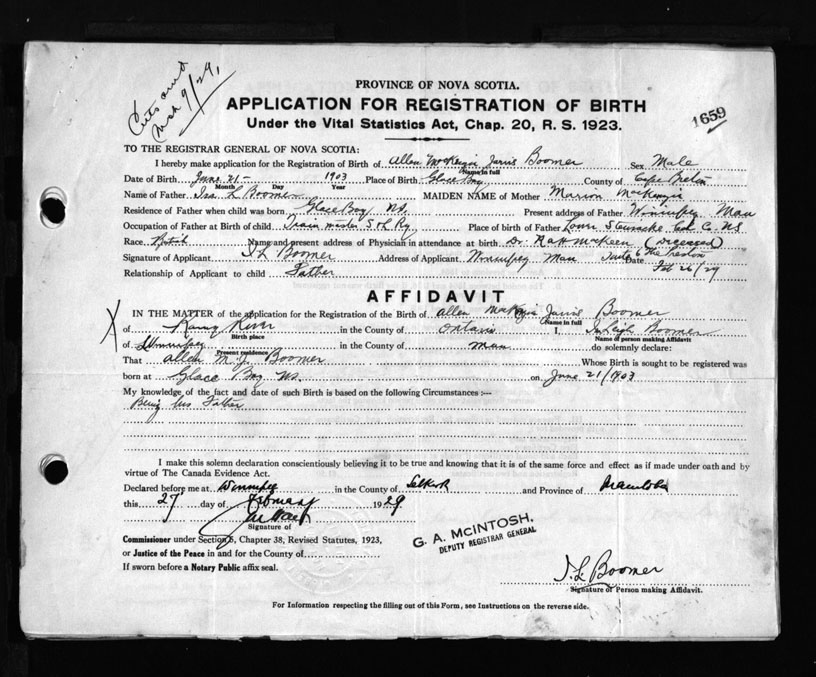 Cuts out
Mch 9/29,
1659
PROVINCE OF NOVA SCOTIA.
APPLICATION FOR REGISTRATION OF BIRTH
Under the Vital Statistics Act, Chap. 20, R. S. 1923.
TO THE REGISTRAR GENERAL OF NOVA SCOTIA:
I hereby make application for the Registration of Birth of Allen McKenzie Jarvis Boomer Sex Male
Name in full
Date of Birth June 21 - 1903 Place of Birth Glace Bay County of Cape Breton
Month Day Year
Name of Father Isa L Boomer MAIDEN NAME of Mother Marion MacKenzie
Residence of Father when child was born Glace Bay NS. Present address of Father Winnipeg Man
Occupation of Father at Birth of child Train master S & L Ry. Place of birth of Father Lower Col. Co. NS
Race British Name and present address of Physician in attendance at birth Dr. McKeen (Diceased)
Signature of Applicant I L Boomer Address of Applicant Winnipeg Man Suite 6 The Preston Date Feb 26/29
Relationship of Applicant to child Father
AFFIDAVIT
X IN THE MATTER of the application for the Registration of the Birth of Allen MacKenzie Jarvis Boomer
Name in full
of Rainy River in the County of Ontario I, Boomer
Birth place Name of person making Affidavit
of Winnipeg in the County of Man do solemnly declare:
Present residence
That Allen M. J. Boomer Whose Birth is sought to be registered was
born at Glace Bay NS. on June 21/1903
My knowledge of the fact and date of such Birth is based on the following Circumstances :—
Being his Father
I make this solemn declaration conscientiously believing it to be true and knowing that it is of the same force and effect as if made under oath and by
virtue of The Canada Evidence Act.
Declared before me at Winnipeg in the County of Selkirk and Province of Manitoba
this 27 day of February 1929
Signature of
Commissioner under Section 5, Chapter 38, Revised Statutes, 1923,
or Justice of the Peace in and for the County of
If sworn before a Notary Public affix seal.
G. A. McINTOSH,
DEPUTY REGISTRAR GENERAL
I. L. Boomer
Signature of Person making Affidavit.
For Information respecting the filling out of this Form, see Instructions on the reverse side.